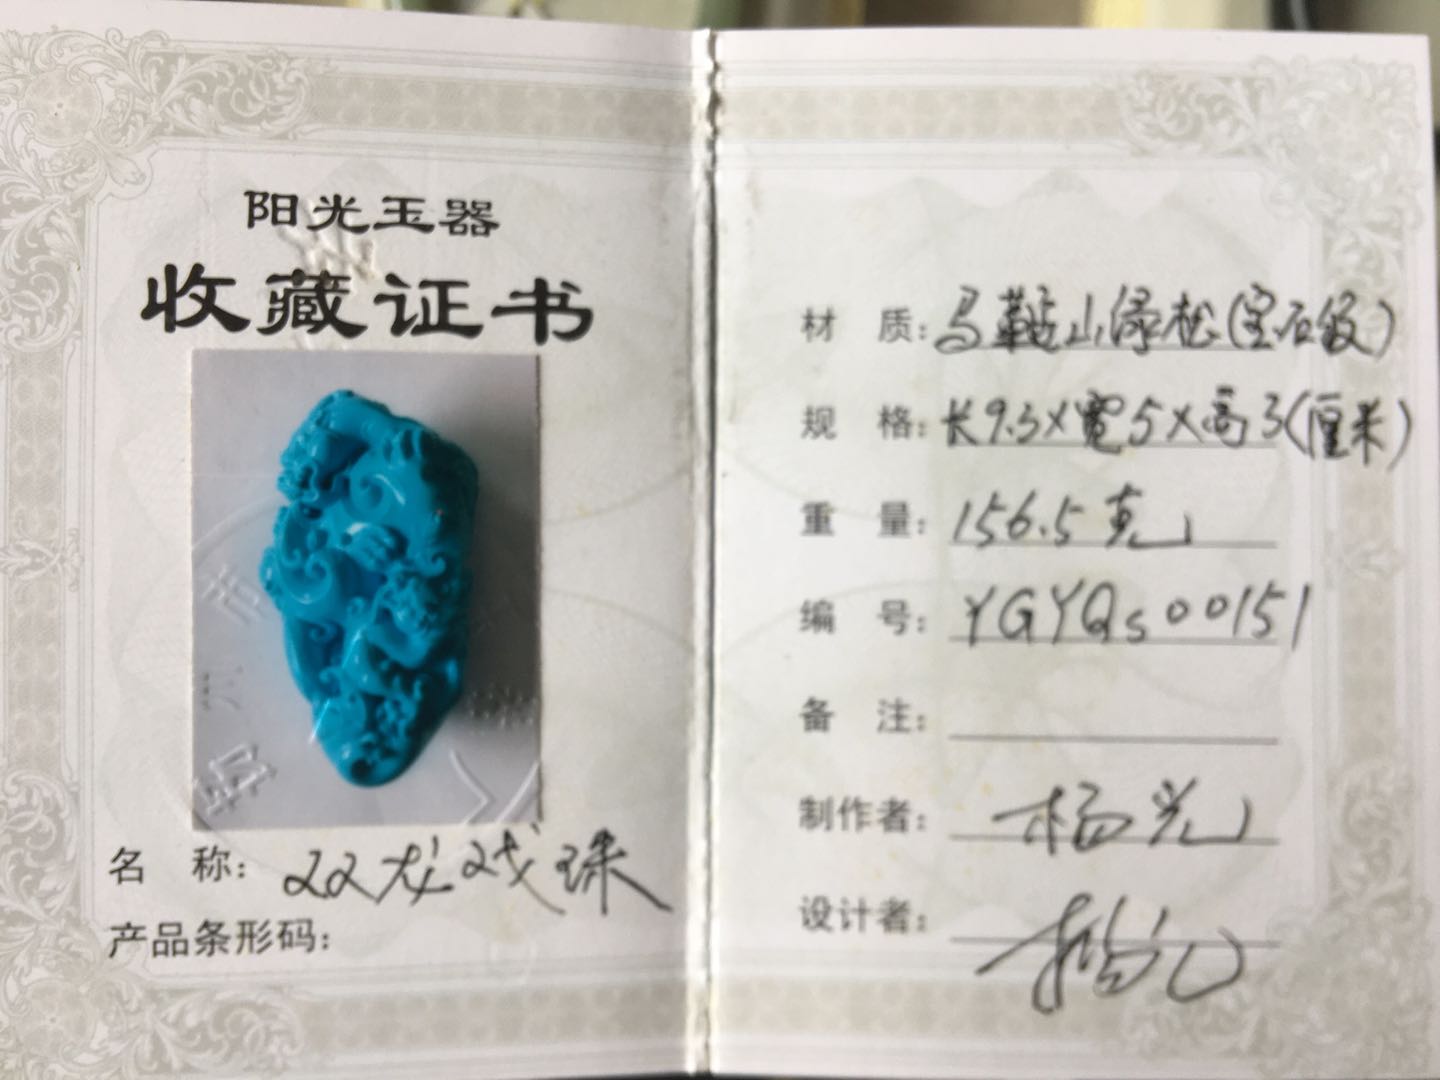 阳光玉器
收藏证书
名 称：双龙戏珠
产品条形码：
材 质：马鞍山绿松（宝石级）
规 格：长9.3×宽5×高3（厘米）
重 量：156.5克
编 号：YGYQs00151
备 注：
制作者：杨光
设计者：杨光